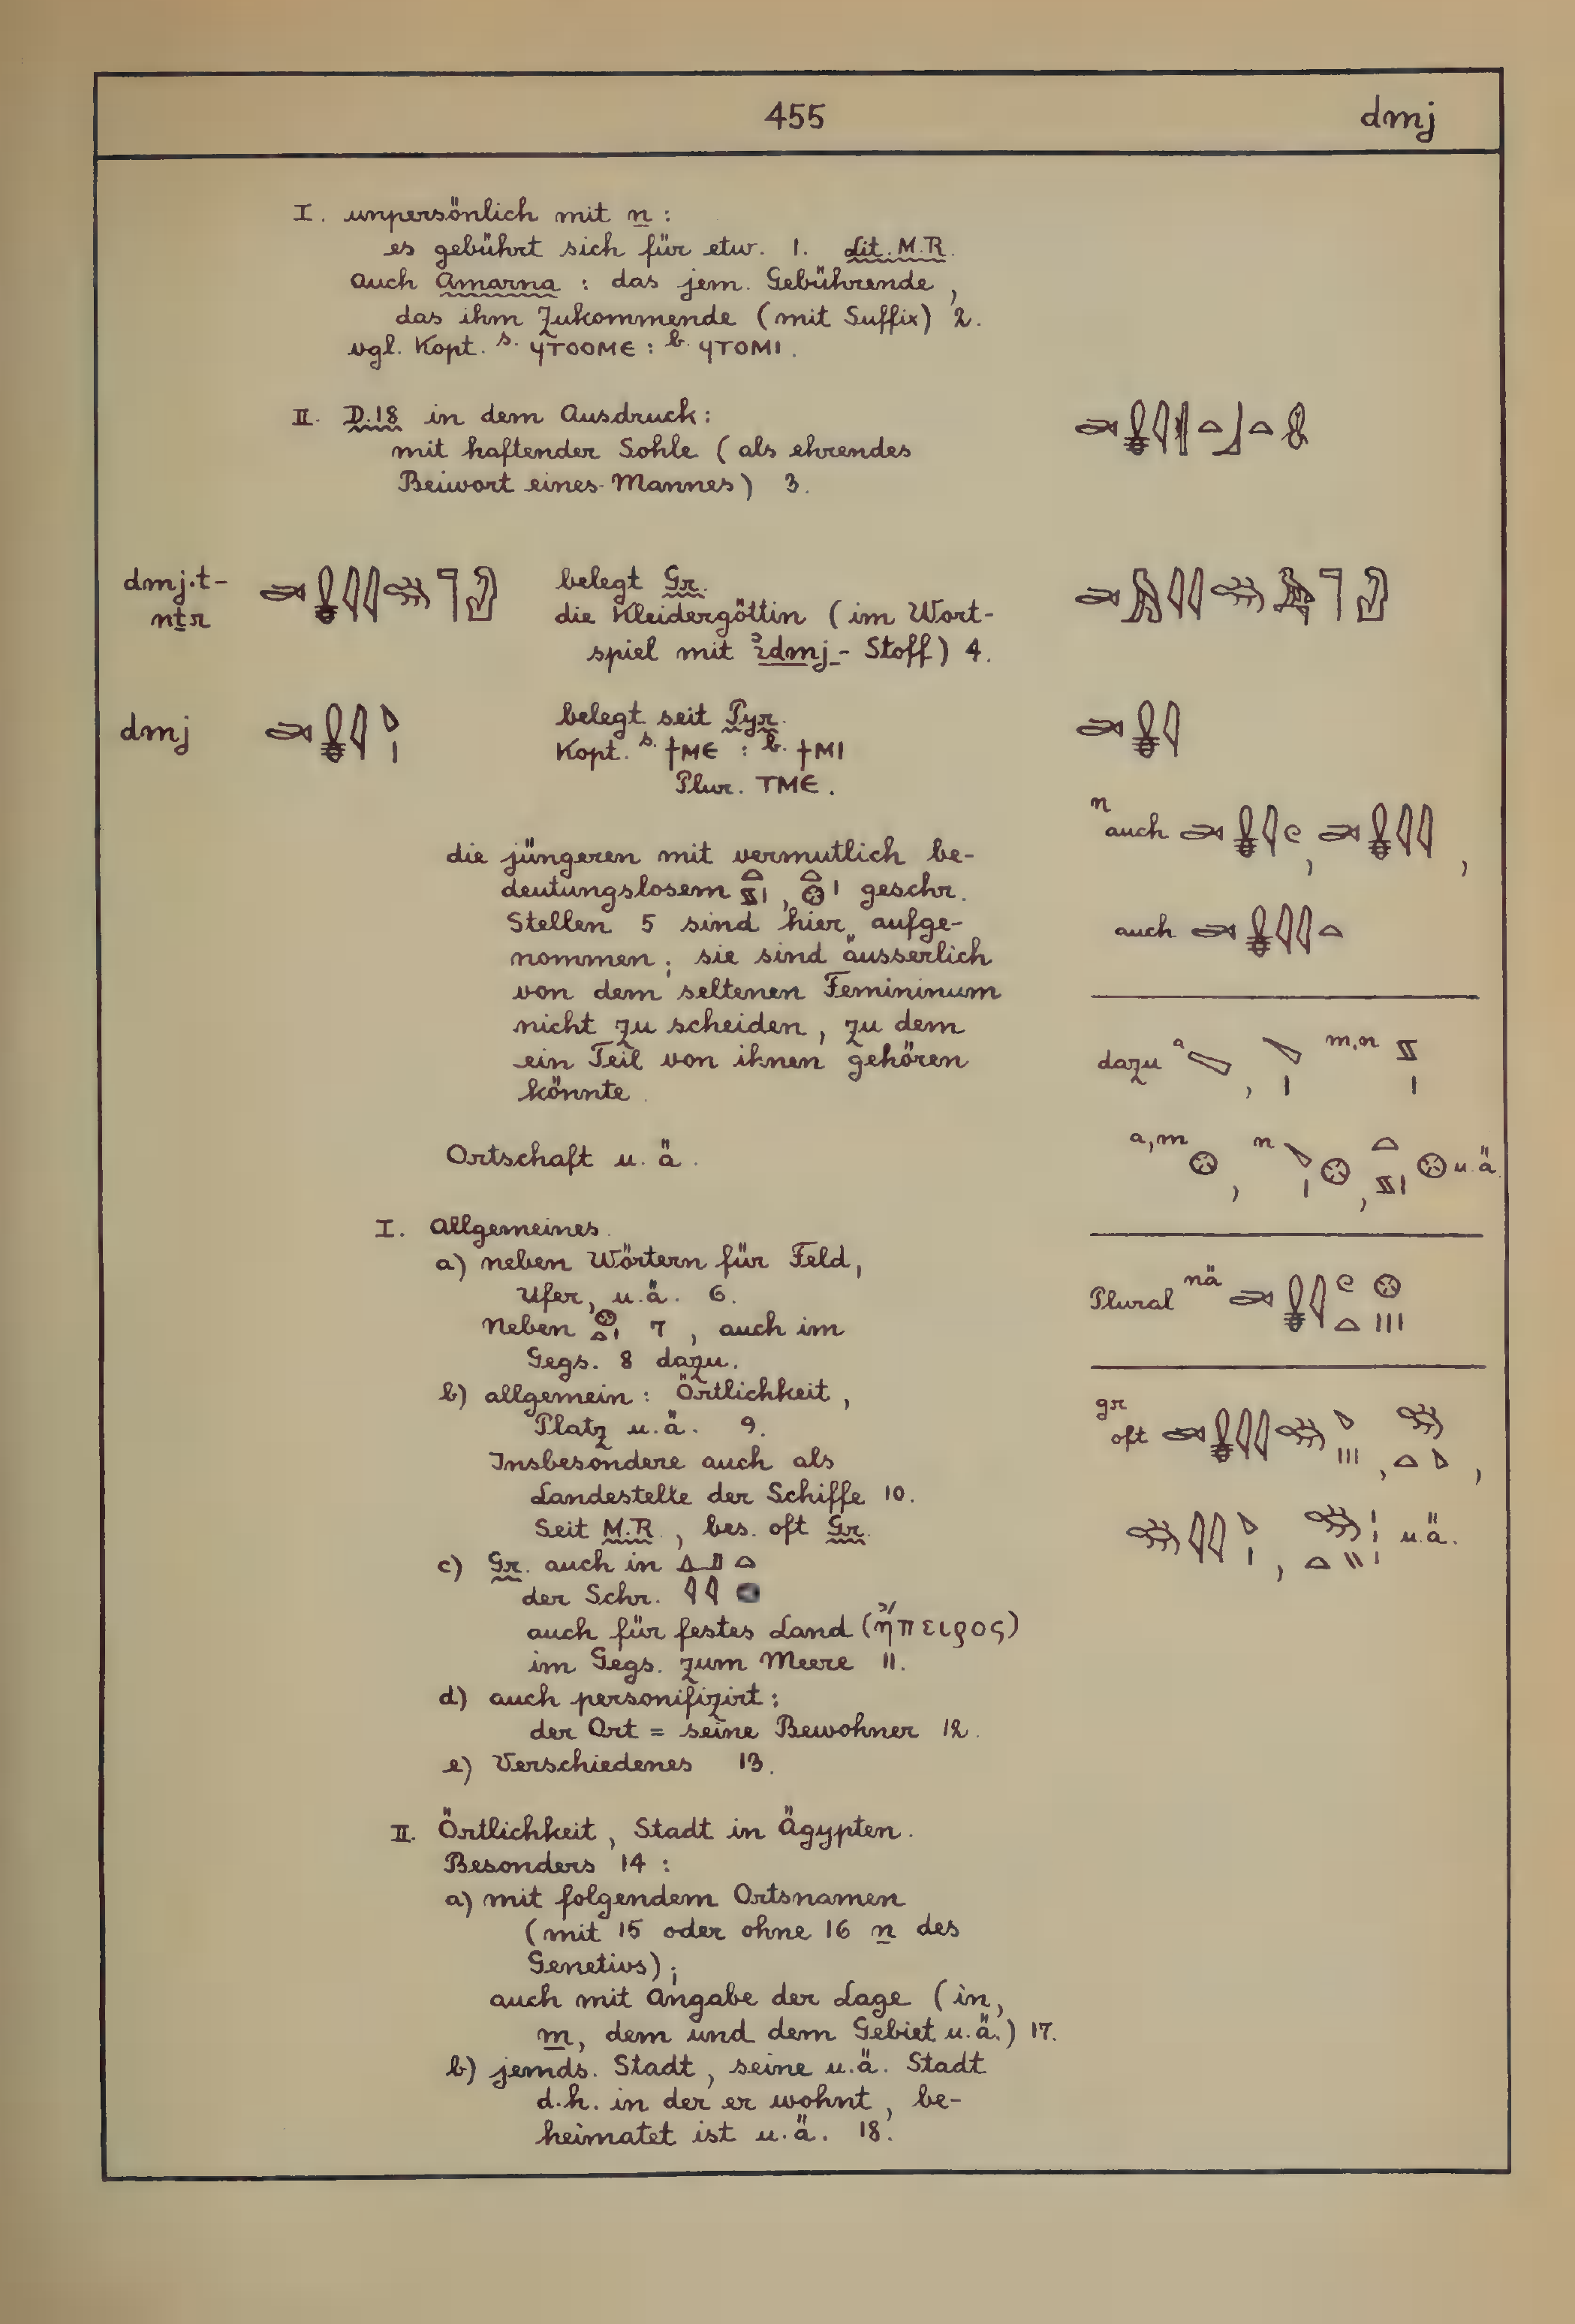 455 dmj
I. unpersönlich mit n :
es gebührt sich für etw. 1. Lit. M.R.
Auch Amarna : das jem. Gebührende,
das ihm Zukommende (mit Suffix) 2.
vgl. Kopt. s. ϥⲧⲟⲟⲙⲉ : b. ϥⲧⲟⲙⲓ.
II. D.18 in dem Ausdruck:
mit haftender Sohle (als ehrendes
Beiwort eines Mannes) 3.
dmj.t-
nṯr
belegt Gr.
die Kleidergöttin (im Wort-
spiel mit ꜣidmj - Stoff) 4.
dmj
belegt seit Pyr.
Kopt. s. ϯⲙⲉ : b. ϯⲙⲓ
Plur. ⲧⲙⲉ.
n auch , ,
auch
die jüngeren mit vermutlich be-
deutungslosem , geschr.
Stellen 5 sind hier aufge-
nommen; sie sind äusserlich
von dem seltenen Femininum
nicht zu scheiden, zu dem
ein Teil von ihnen gehören
könnte.
dazu a , m.n
a, m , n , u.ä.
Ortschaft u.ä.
I. Allgemeines.
a) neben Wörtern für Feld,
Ufer, u.ä. 6.
Neben 7, auch im
Gegs. 8 dazu.
Plural nä
b) allgemein: Örtlichkeit,
Platz u.ä. 9.
Insbesondere auch als
Landestelle der Schiffe 10.
Seit M.R., bes. oft Gr.
gr oft , ,
, u.ä.
c) Gr. auch in
der Schr.
auch für festes Land (ἤπειρος)
im Gegs. zum Meere 11.
d) auch personifizirt:
der Ort = seine Bewohner 12.
e) Verschiedenes 13.
II. Örtlichkeit, Stadt in Ägypten.
Besonders 14 :
a) mit folgendem Ortsnamen
(mit 15 oder ohne 16 n des
Genetivs);
auch mit Angabe der Lage (in,
m, dem und dem Gebiet u.ä.) 17.
b) jemds. Stadt, seine u.ä. Stadt
d.h. in der er wohnt, be-
heimatet ist u.ä. 18.